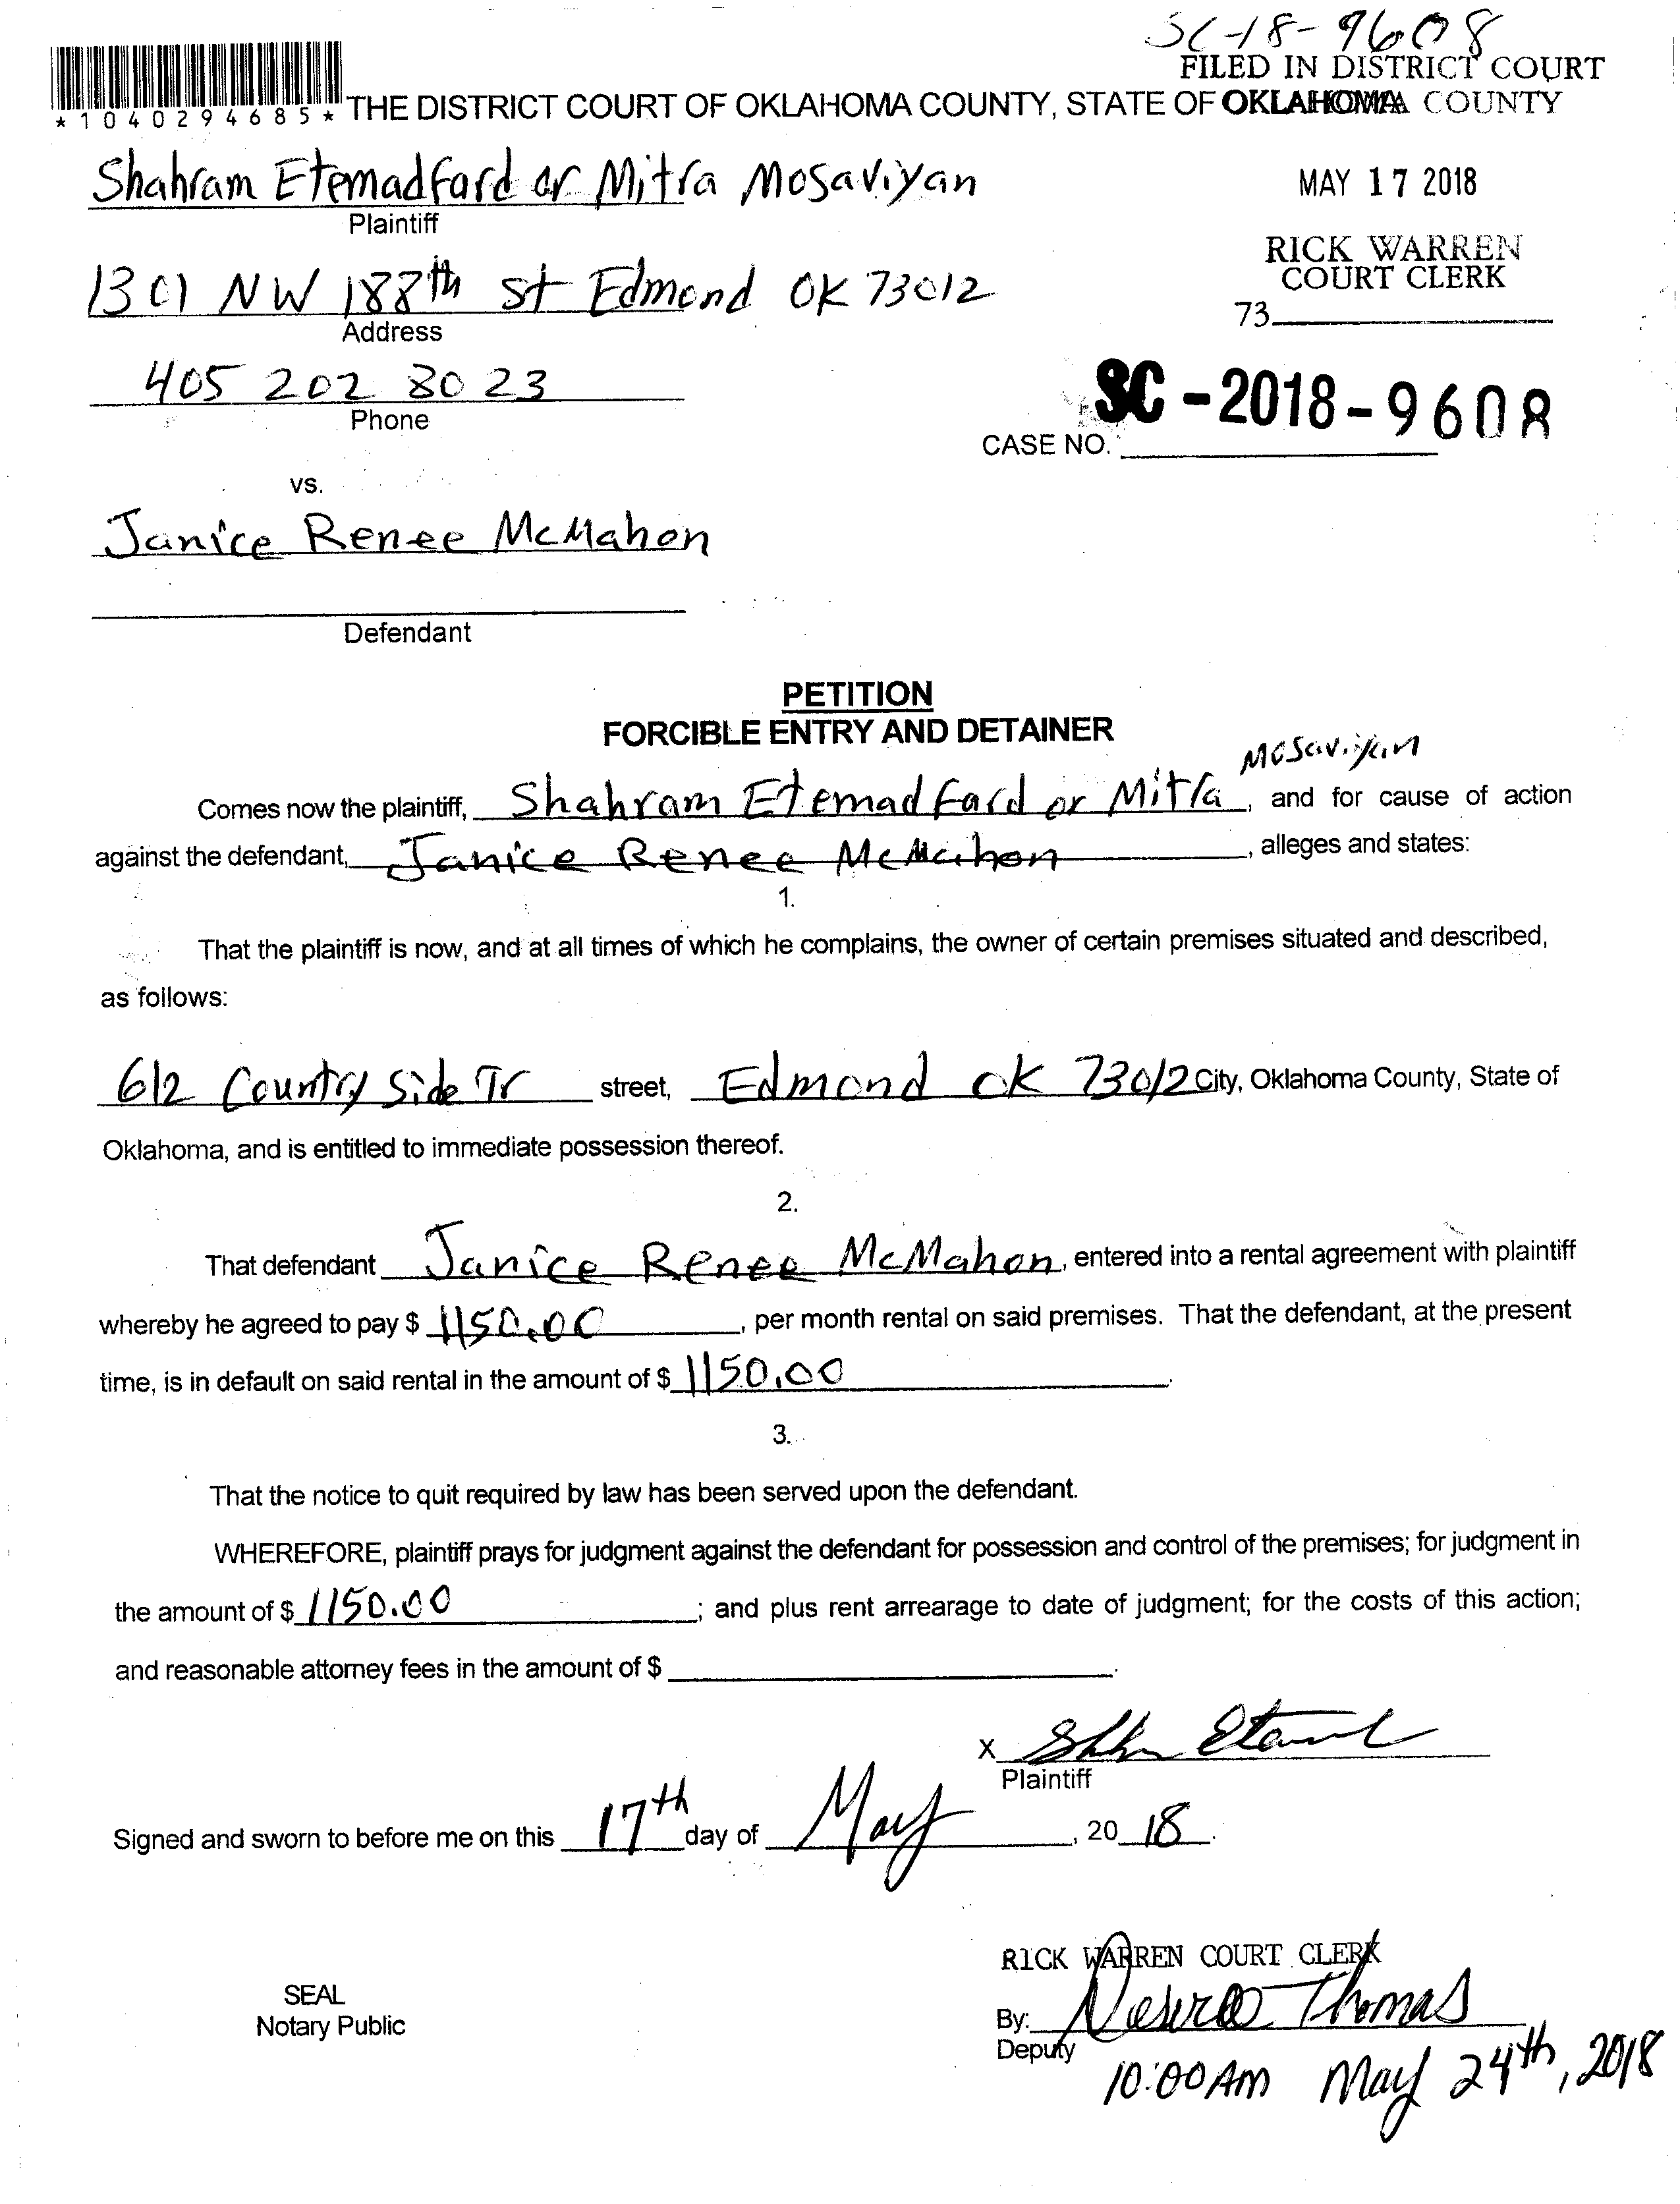 SC-18-9608
FILED IN DISTRICT COURT
*1040294685* THE DISTRICT COURT OF OKLAHOMA COUNTY, STATE OF OKLAHOMA COUNTY
Shahram Etemadfard or Mitra Mosaviyan
Plaintiff
MAY 17 2018
RICK WARREN
COURT CLERK
1301 NW 188th St Edmond OK 73012
Address
73
405 202 8023
Phone
SC-2018-9608
CASE NO.
vs.
Janice Renee McMahon
Defendant
PETITION
FORCIBLE ENTRY AND DETAINER
Mosaviyan
Comes now the plaintiff, Shahram Etemadfard or Mitra, and for cause of action
against the defendant, Janice Renee McMahon, alleges and states:
1.
That the plaintiff is now, and at all times of which he complains, the owner of certain premises situated and described,
as follows:
612 Country Side Tr street, Edmond OK 73012 City, Oklahoma County, State of
Oklahoma, and is entitled to immediate possession thereof.
2.
That defendant Janice Renee McMahon, entered into a rental agreement with plaintiff
whereby he agreed to pay $ 1150.00, per month rental on said premises. That the defendant, at the present
time, is in default on said rental in the amount of $ 1150.00.
3.
That the notice to quit required by law has been served upon the defendant.
WHEREFORE, plaintiff prays for judgment against the defendant for possession and control of the premises; for judgment in
the amount of $ 1150.00; and plus rent arrearage to date of judgment; for the costs of this action;
and reasonable attorney fees in the amount of $ .
X
Plaintiff
Signed and sworn to before me on this 17th day of May, 2018.
RICK WARREN COURT CLERK
SEAL
Notary Public
By: Thomas
Deputy
10:00 AM May 24th, 2018